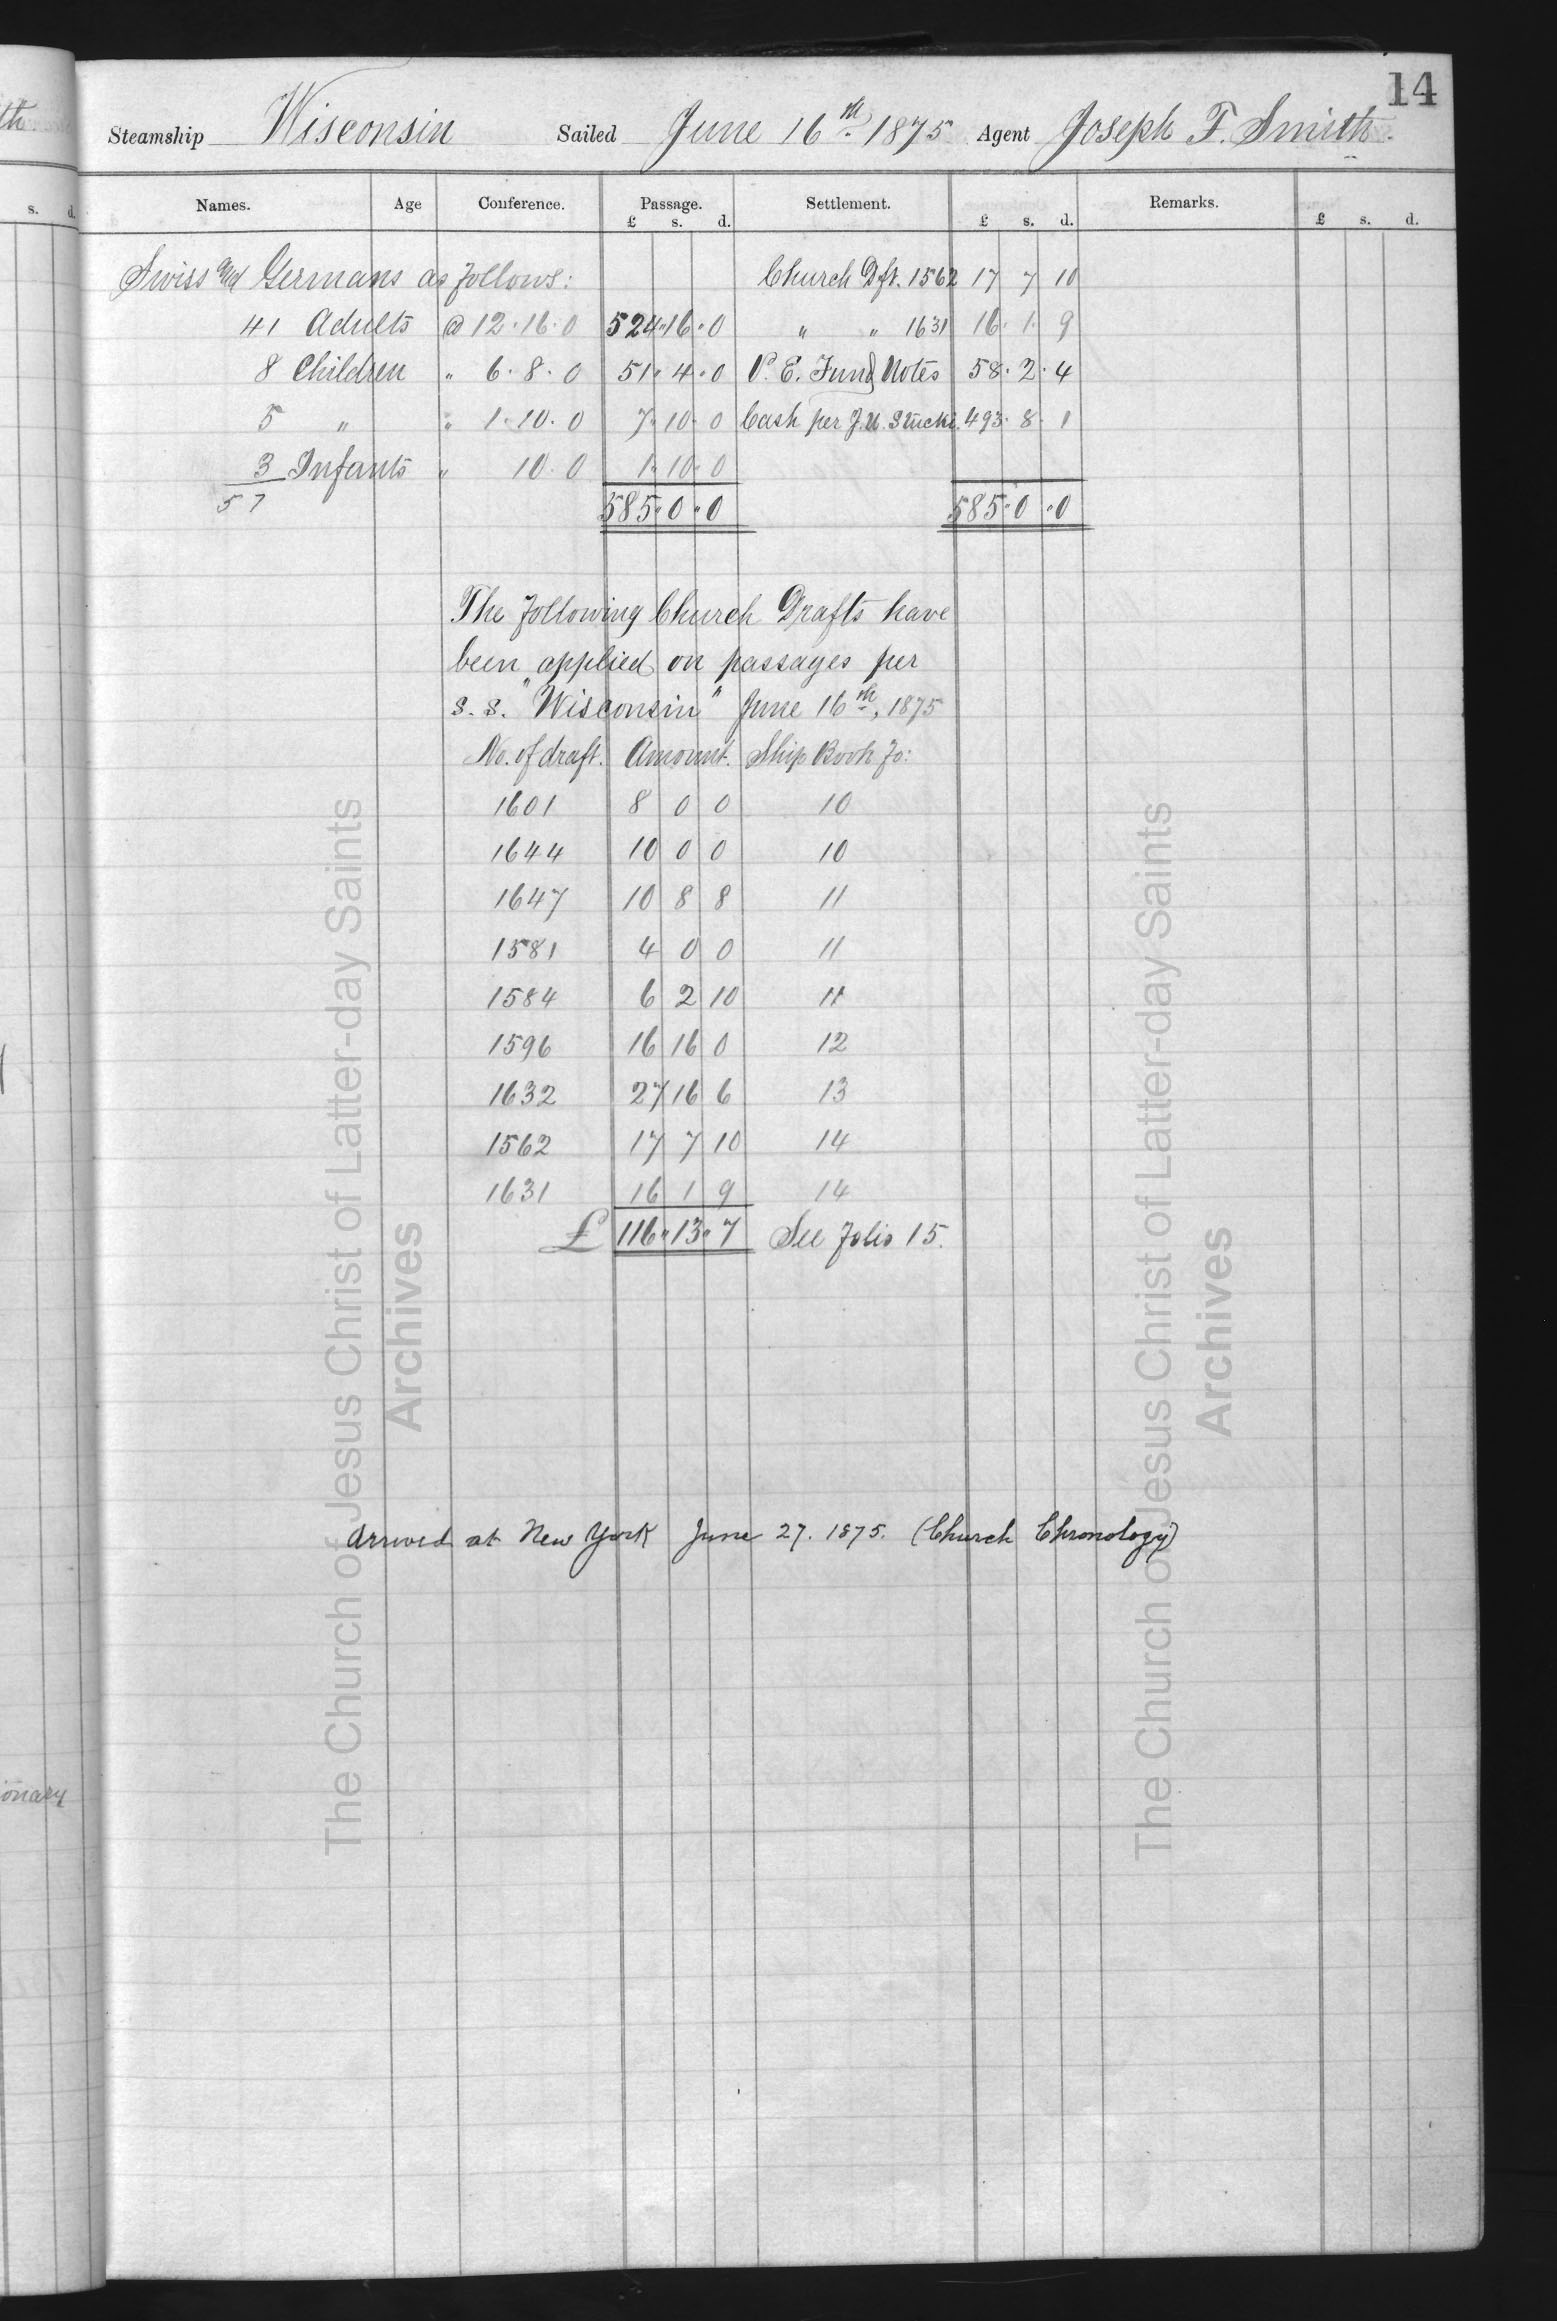 14
Steamship Wisconsin Sailed June 16th 1875 Agent Joseph F. Smith
Names. Age Conference. Passage. £ s. d. Settlement. £ s. d. Remarks. £ s. d.
s. d.
Swiss and Germans as follows: Church Dft. 1562 17 7 10
41 Adults @ 12.16.0 524"16"0 " " 1631 16.1.9
8 Children " 6.8.0 51"4"0 P. E. Fund Notes 58.2.4
5 " " 1.10.0 7"10"0 Cash per J.U. Stucki 493.8.1
3 Infants " 10.0 1"10"0
57 585"0"0 585"0"0
The following Church Drafts have
been applied on passages per
S.S. "Wisconsin" June 16th, 1875
No. of draft. Amount. Ship Book fo:
1601 8 0 0 10
1644 10 0 0 10
1647 10 8 8 11
1581 4 0 0 11
1584 6 2 10 11
1596 16 16 0 12
1632 27 16 6 13
1562 17 7 10 14
1631 16 1 9 14
£ 116"13"7 See folio 15.
Arrived at New York June 27. 1875. (Church Chronology)
onary
The Church of Jesus Christ of Latter-day Saints
Archives
The Church of Jesus Christ of Latter-day Saints
Archives